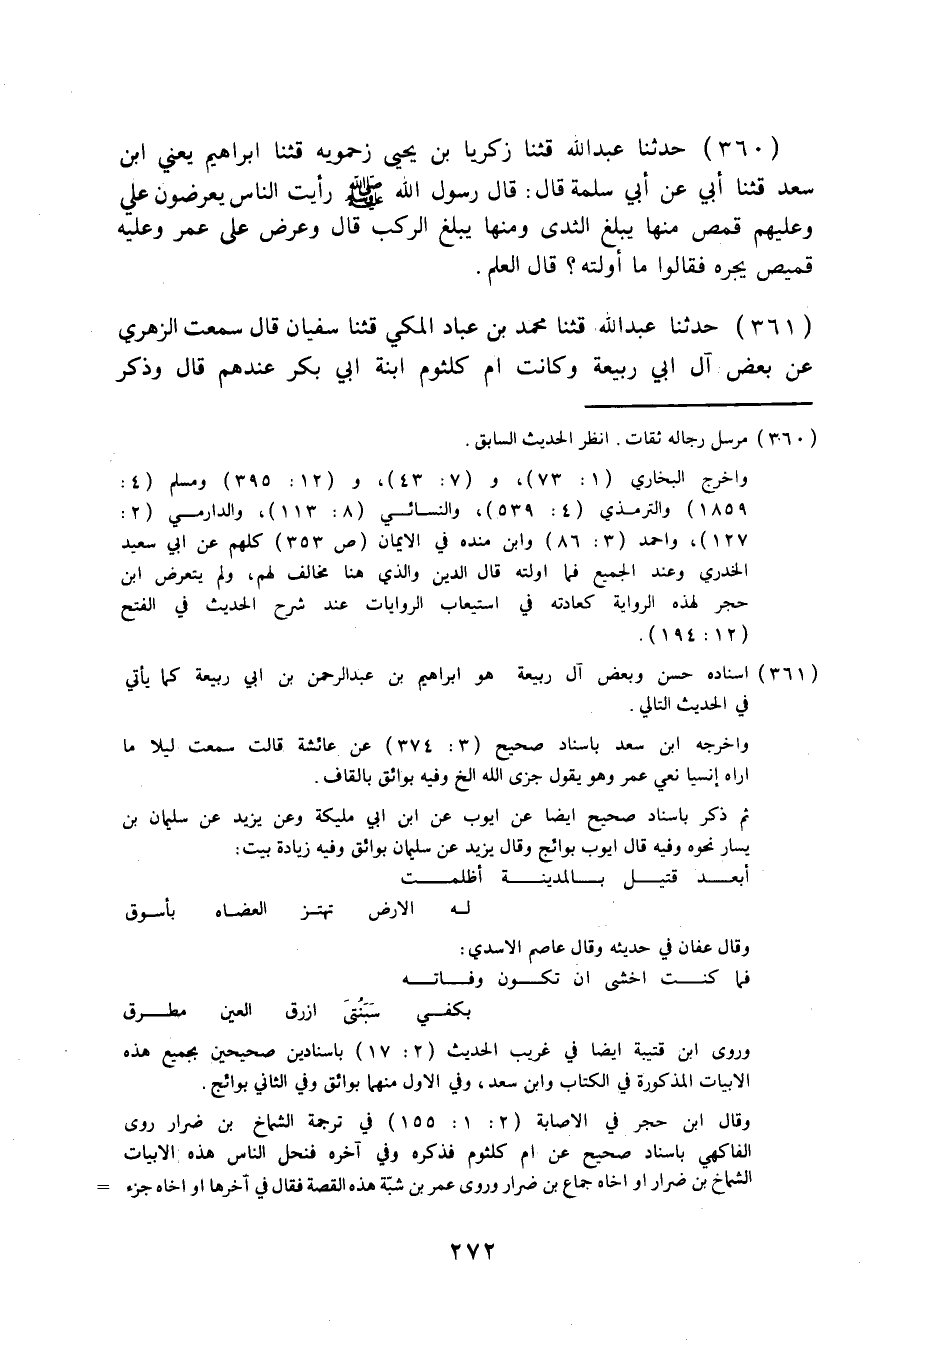 (٣٦٠) حدثنا عبدالله قثنا زكريا بن يحيى زحمويه قثنا ابراهيم يعني ابن
سعد قثنا أبي عن أبي سلمة قال: قال رسول الله ﷺ رأيت الناس يعرضون علي
وعليهم قمص منها يبلغ الثدى ومنها يبلغ الركب قال وعرض على عمر وعليه
قميص يجره فقالوا ما أولته؟ قال العلم.
(٣٦١) حدثنا عبدالله قثنا محمد بن عباد المكي قثنا سفيان قال سمعت الزهري
عن بعض آل ابي ربيعة وكانت ام كلثوم ابنة ابي بكر عندهم قال وذكر
(٣٦٠) مرسل رجاله ثقات. انظر الحديث السابق.
واخرج البخاري (١: ٧٣)، و (٧: ٤٣)، و (١٢: ٣٩٥) ومسلم (٤:
١٨٥٩) والترمذي (٤: ٥٣٩)، والنسائي (٨: ١١٣)، والدارمي (٢:
١٢٧)، واحمد (٣: ٨٦) وابن منده في الايمان (ص ٣٥٣) كلهم عن ابي سعيد
الخدري وعند الجميع فما اولته قال الدين والذي هنا مخالف لهم، ولم يتعرض ابن
حجر لهذه الرواية كعادته في استيعاب الروايات عند شرح الحديث في الفتح
(١٢: ١٩٤).
(٣٦١) اسناده حسن وبعض آل ربيعة هو ابراهيم بن عبدالرحمن بن ابي ربيعة كما يأتي
في الحديث التالي.
واخرجه ابن سعد باسناد صحيح (٣: ٣٧٤) عن عائشة قالت سمعت ليلا ما
اراه إنسيا نعي عمر وهو يقول جزى الله الخ وفيه بوائق بالقاف.
ثم ذكر باسناد صحيح ايضا عن ايوب عن ابن ابي مليكة وعن يزيد عن سليمان بن
يسار نحوه وفيه قال ايوب بوائج وقال يزيد عن سليمان بوائق وفيه زيادة بيت:
أبعد قتيل بالمدينة أظلمت
له الارض تهتز العضاه بأسوق
وقال عفان في حديثه وقال عاصم الاسدي:
فما كنت اخشى ان تكون وفاته
بكفي سَبَنْتَى ازرق العين مطرق
وروى ابن قتيبة ايضا في غريب الحديث (٢: ١٧) باسنادين صحيحين بجميع هذه
الابيات المذكورة في الكتاب وابن سعد، وفي الاول منهما بوائق وفي الثاني بوائج.
وقال ابن حجر في الاصابة (٢: ١: ١٥٥) في ترجمة الشماخ بن ضرار روى
الفاكهي باسناد صحيح عن ام كلثوم فذكره وفي آخره فنحل الناس هذه الابيات
الشماخ بن ضرار او اخاه جماع بن ضرار وروى عمر بن شبّة هذه القصة فقال في آخرها او اخاه جزء =
٢٧٢